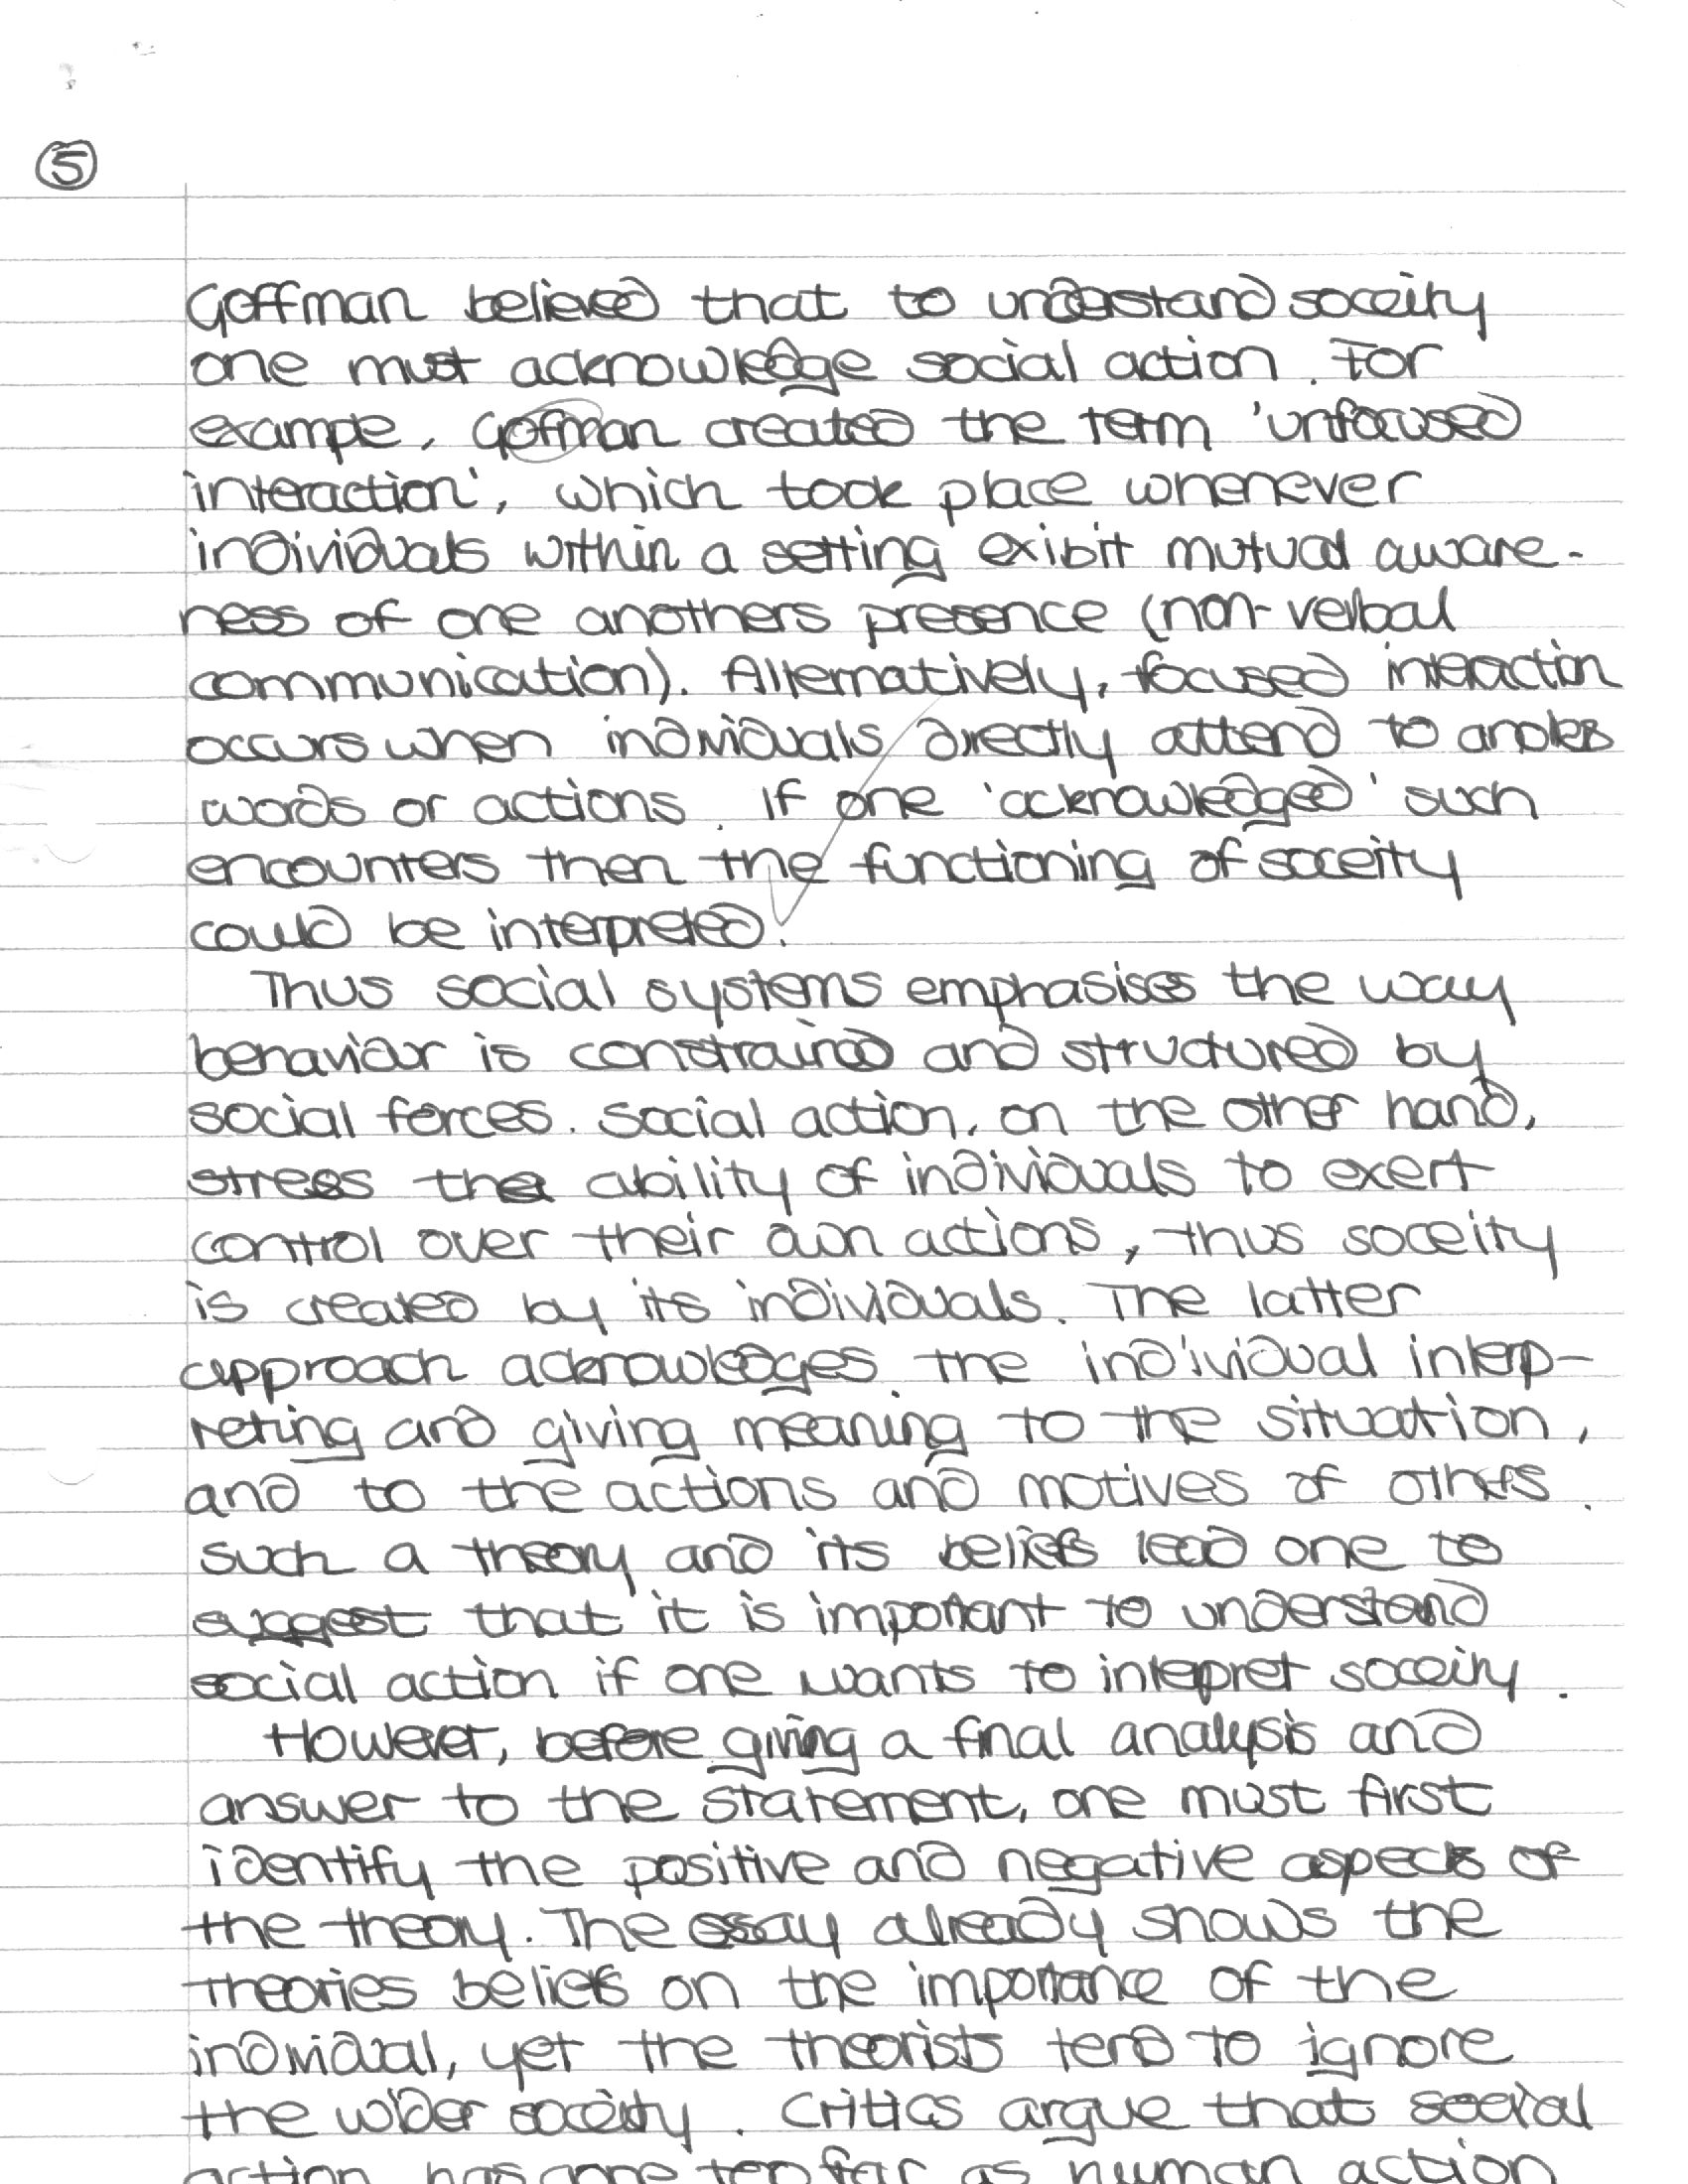 5
Goffman believed that to understand soceity
one must acknowledge social action. For
exampe, Goffman created the term 'unfocused
interaction', which took place whenever
individuals within a setting exibit mutual aware-
ness of one anothers presence (non-verbal
communication). Alternatively, focused interaction
occurs when individuals directly attend to
words or actions. If one 'acknowledged' such
encounters then the functioning of soceity
could be interpreted.
Thus social systems emphasises the way
behaviour is constrained and structured by
social forces. Social action, on the other hand,
stress the ability of individuals to exert
control over their own actions, thus soceity
is created by its individuals. The latter
approach acknowledges the individual interp-
reting and giving meaning to the situation,
and to the actions and motives of others.
such a theory and its beliefs lead one to
suggest that it is important to understand
social action if one wants to intepret soceity.
However, before giving a final analysis and
answer to the statement, one must first
identify the positive and negative aspects of
the theory. The essay already shows the
theories beliefs on the importance of the
individual, yet the theorists tend to ignore
the wider soceity. Critics argue that social
action has gone too far as human action